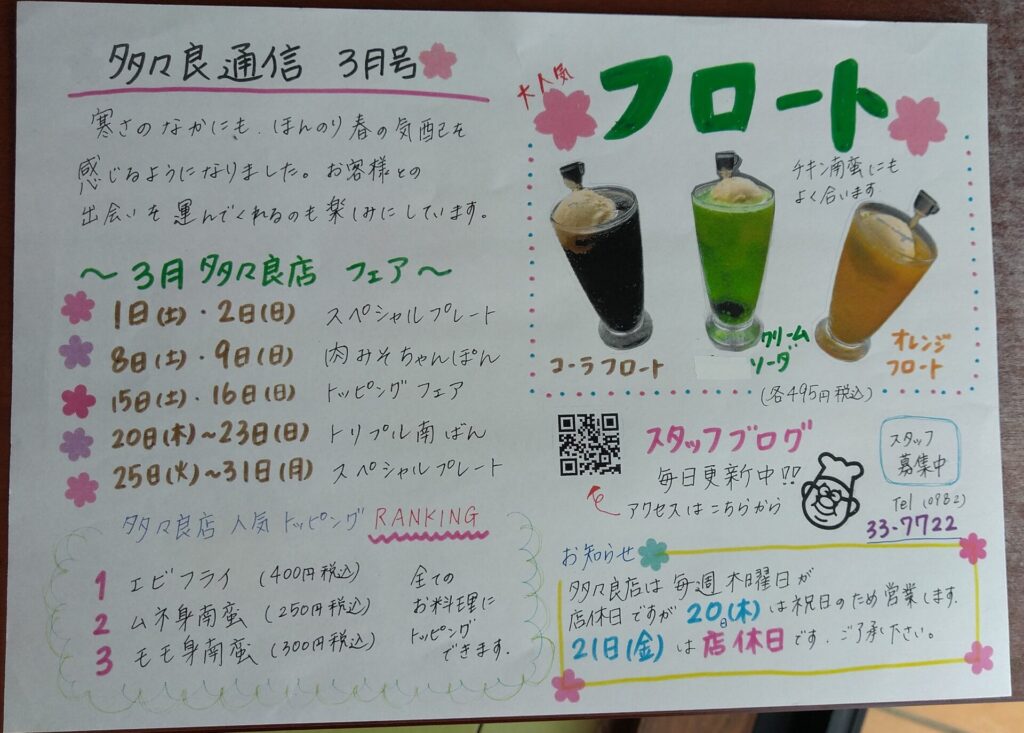 多々良通信 3月号
寒さのなかにも、ほんのり春の気配を
感じるようになりました。お客様との
出会いを運んでくれるのも楽しみにしています。
〜3月 多々良店 フェア〜
1日(土)・2日(日) スペシャルプレート
8日(土)・9日(日) 肉みそちゃんぽん
15日(土)・16日(日) トッピングフェア
20日(木)〜23日(日) トリプル南ばん
25日(火)〜31日(月) スペシャルプレート
多々良店 人気トッピング RANKING
1 エビフライ (400円税込)
2 ムネ身南蛮 (250円税込)
3 モモ身南蛮 (300円税込)
全ての
お料理に
トッピング
できます.
大人気
フロート
チキン南蛮にも
よく合います
コーラフロート
クリーム
ソーダ
オレンジ
フロート
(各495円税込)
スタッフブログ
毎日更新中!!
アクセスはこちらから
スタッフ
募集中
Tel (0982)
33-7722
お知らせ
多々良店は 毎週 木曜日が
店休日ですが 20日(木)は祝日のため営業します.
21日(金)は店休日です. ご了承下さい。